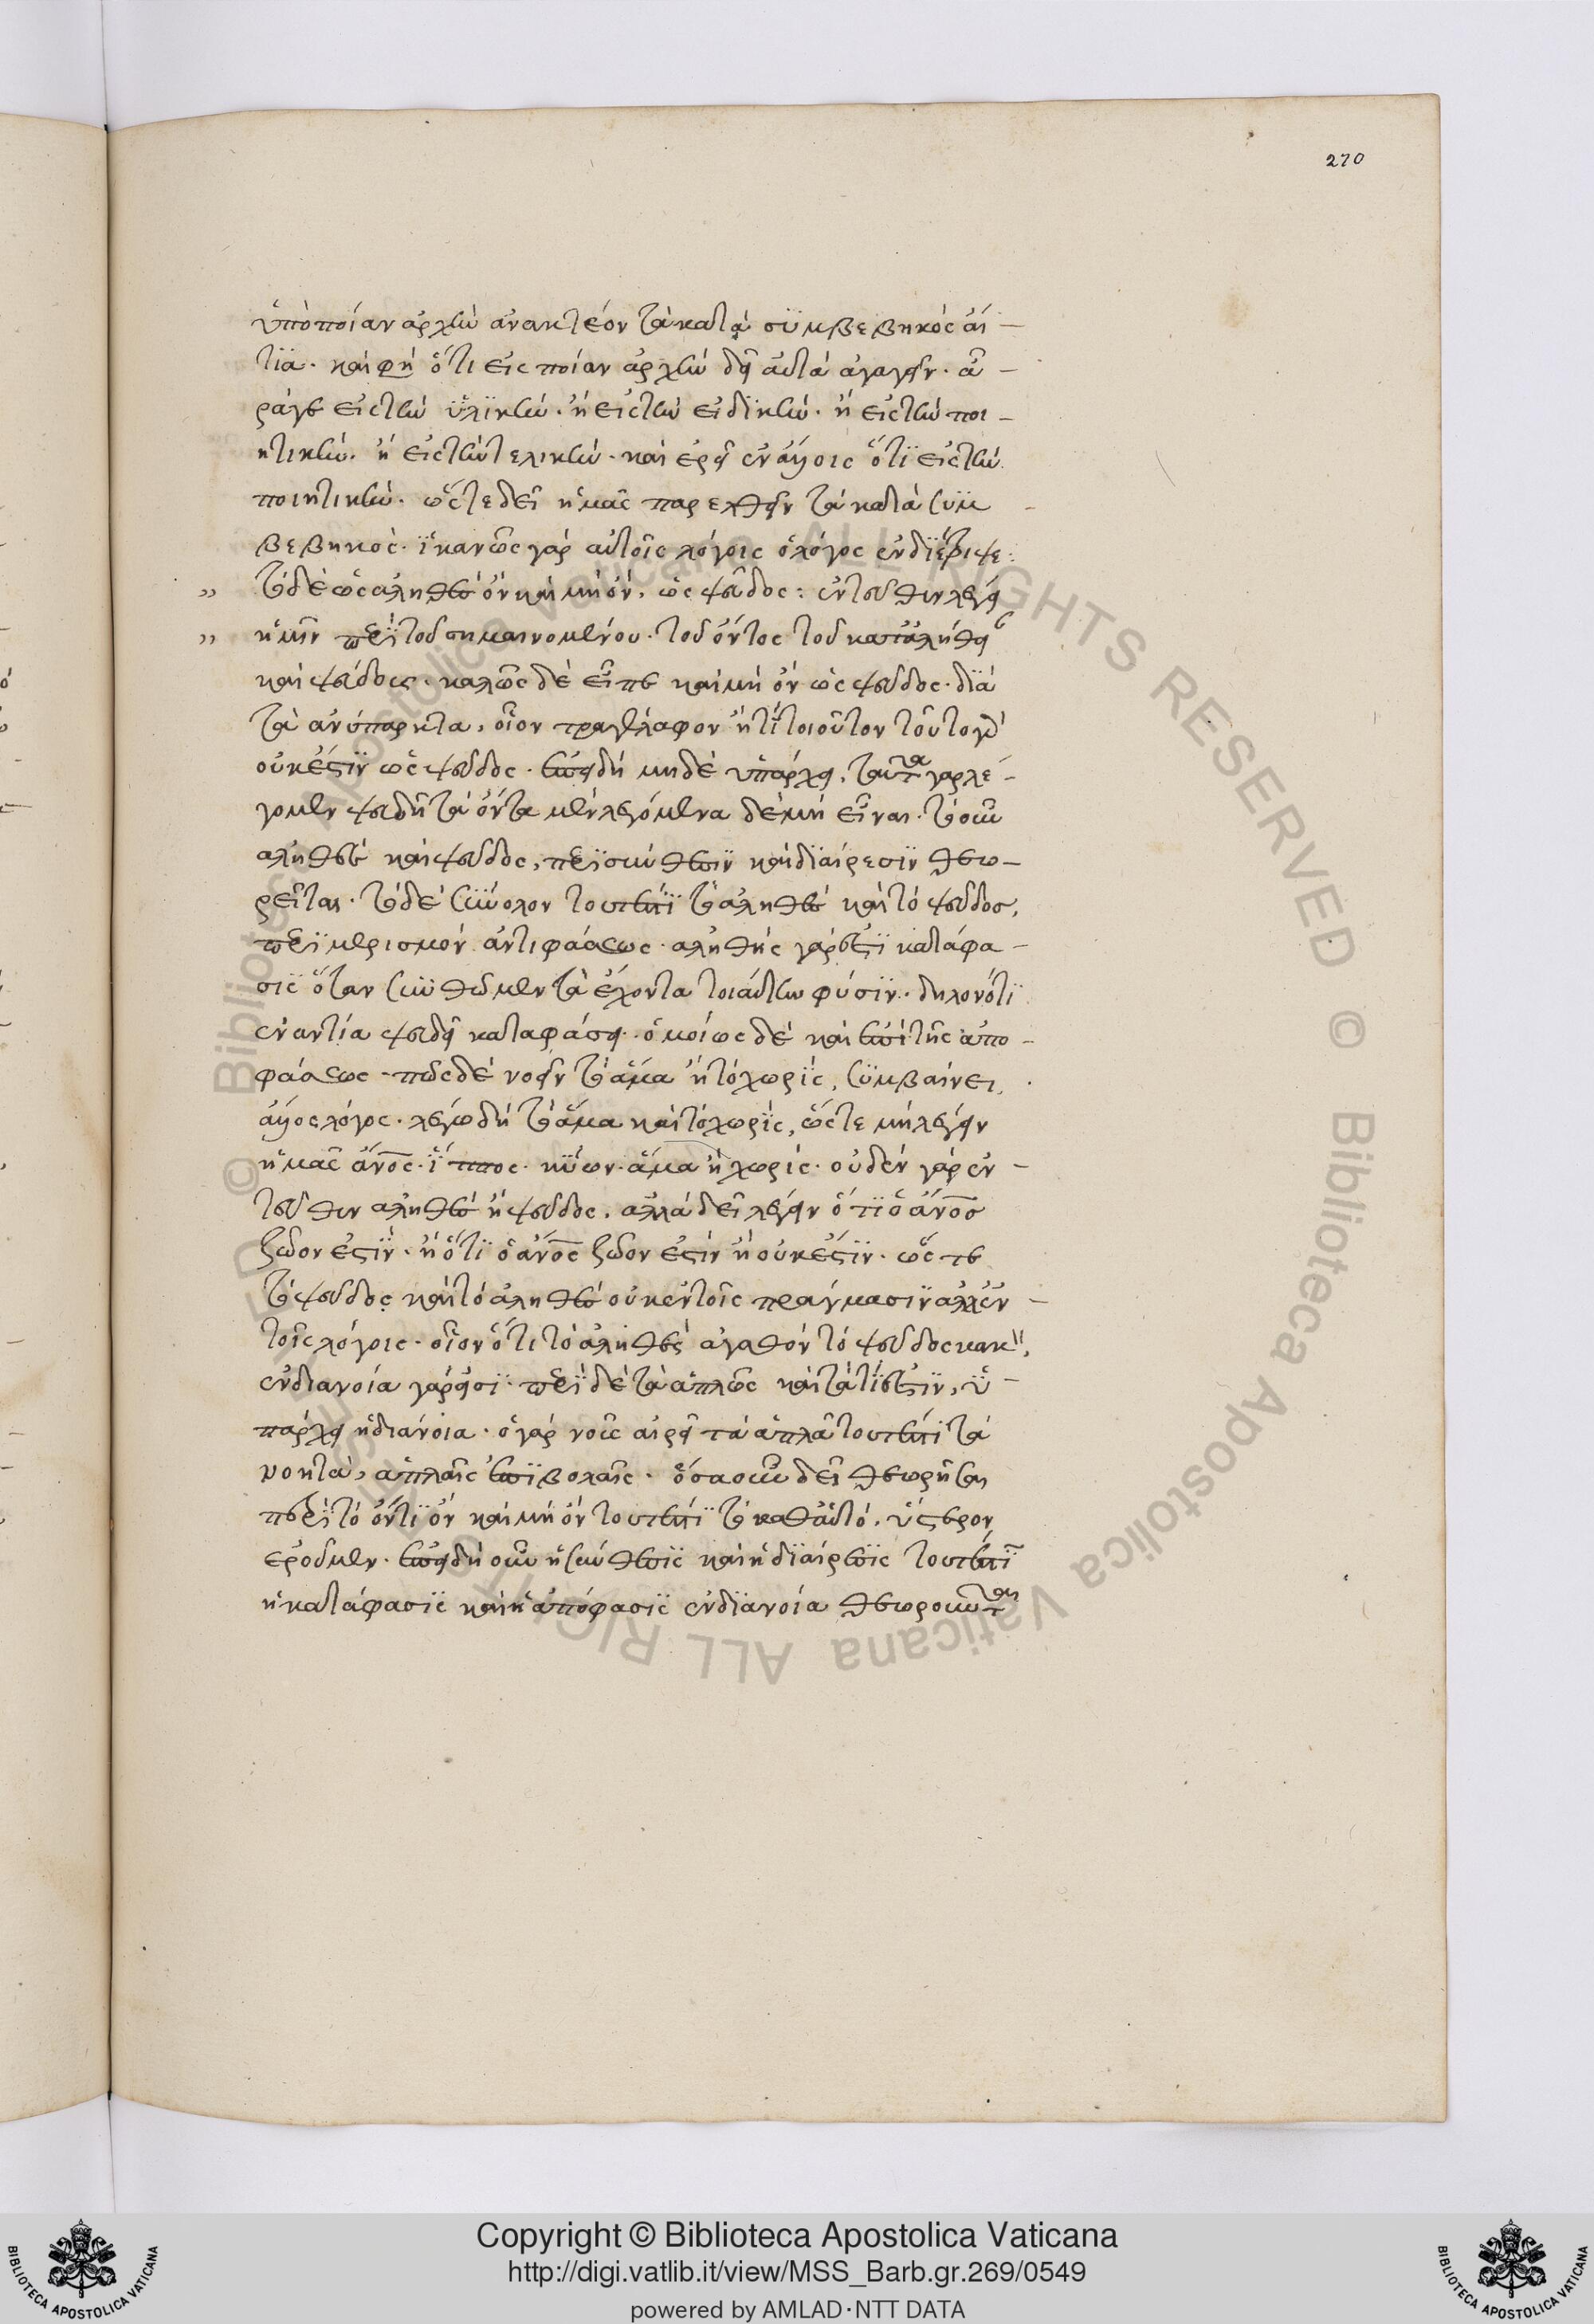 270
ὑπὸ ποίαν ἀρχὴν ἀνακτέον τὰ κατὰ συμβεβηκὸς αἴ-
τια. καὶ φη ὅτι εἰς ποίαν ἀρχὴν δεῖ αὐτὰ ἀγαγεῖν. ἆ-
ράγε εἰς τὴν ὑλικὴν. ἢ εἰς τὴν εἰδικὴν. ἢ εἰς τὴν ποι-
ητικὴν. ἢ εἰς τὴν τελικὴν. καὶ ἐρεῖ ἐν ἄλλοις ὅτι εἰς τὴν
ποιητικὴν. ὥστε δεῖ ἡμᾶς παρελθεῖν τὰ κατὰ συμ
βεβηκὸς. ἱκανῶς γὰρ αὐτοῖς λόγοις ὁ λόγος ἐνδιέτριψε:
τὸ δὲ ὡς ἀληθὲς ὂν καὶ μὴ ὂν, ὡς ψεῦδος: ἐντεῦθεν λέγει
ἡμῖν περὶ τοῦ σημαινομένου. τοῦ ὄντος τοῦ κατ' ἀλήθει
καὶ ψεύδους. καλῶς δὲ εἶπε καὶ μὴ ὂν ὡς ψεῦδος. διὰ
τὰ ἀνύπαρκτα, οἷον τραγέλαφον ἤ τι τοιοῦτον τοῦτο γὰρ
οὐκ ἔστιν ὡς ψεῦδος. ἐπειδὴ μηδὲ ὑπάρχει, ταῦτα γὰρ λέ-
γομεν ψευδῆ τὰ ὄντα μὲν λεγόμενα δὲ μὴ εἶναι. τὸ οὖν
ἀληθὲς καὶ ψεῦδος, περὶ σύνθεσιν καὶ διαίρεσιν θεω-
ρεῖται. τὸ δὲ σύνολον τουτέστι τὸ ἀληθὲς καὶ τὸ ψεῦδος,
περὶ μερισμὸν ἀντιφάσεως. ἀληθὴς γάρ ἐστι κατάφα-
σις ὅταν συνθῶμεν τὰ ἔχοντα τοιαύτην φύσιν. δηλονότι
ἐναντία ψευδεῖ καταφάσει. ὁμοίως δὲ καὶ ἐπὶ τῆς ἀπο-
φάσεως. πῶς δὲ νοεῖν τὸ ἅμα ἢ τὸ χωρὶς, συμβαίνει,
ἄλλος λόγος. λέγω δὴ τὸ ἅμα καὶ τὸ χωρὶς, ὥστε μὴ λέγειν
ἡμᾶς ἄνος. ἵππος. κύων. ἅμα ἢ χωρίς. οὐδὲν γὰρ ἐν-
τεῦθεν ἀληθὲς ἢ ψεῦδος. ἀλλὰ δεῖ λέγειν ὅτι ὁ ἄνος
ζῶον ἐστὶν. ἢ ὅτι ὁ ἄνος ζῶον ἐστὶν ἢ οὐκ ἔστιν. ὥστε
τὸ ψεῦδος καὶ τὸ ἀληθὲς οὐκ ἐν τοῖς πράγμασιν ἀλλ' ἐν
τοῖς λόγοις. οἷον ὅτι τὸ ἀληθὲς ἀγαθὸν τὸ ψεῦδος κακὸν,
ἐν διανοία γάρ εἰσι. περὶ δὲ τὰ ἁπλῶς καὶ τὰ τί ἐστιν, ὑ-
πάρχει ἡ διάνοια. ὁ γὰρ νοῦς αἱρεῖ τὰ ἁπλᾶ τουτέστι τὰ
νοητὰ, ἁπλαῖς ἐπιβολαῖς. ὅσα οὖν δεῖ θεωρῆσαι
περὶ τὸ ὄντι ὂν καὶ μὴ ὂν τουτέστι τὸ καθ' αὑτό, ὕστερον
ἐροῦμεν. ἐπειδὴ οὖν ἡ σύνθεσις καὶ ἡ διαίρεσις τουτέστιν
ἡ κατάφασις καὶ ἡ ἀπόφασις ἐν διανοία θεωροῦνται
Copyright © Biblioteca Apostolica Vaticana
http://digi.vatlib.it/view/MSS_Barb.gr.269/0549
powered by AMLAD·NTT DATA